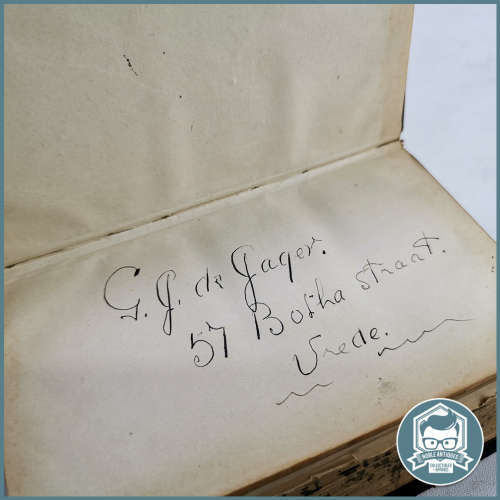 G. J. de Jager.
57 Botha straat.
Vrede.
NOBLE ANTIQUES
COLLECTABLES